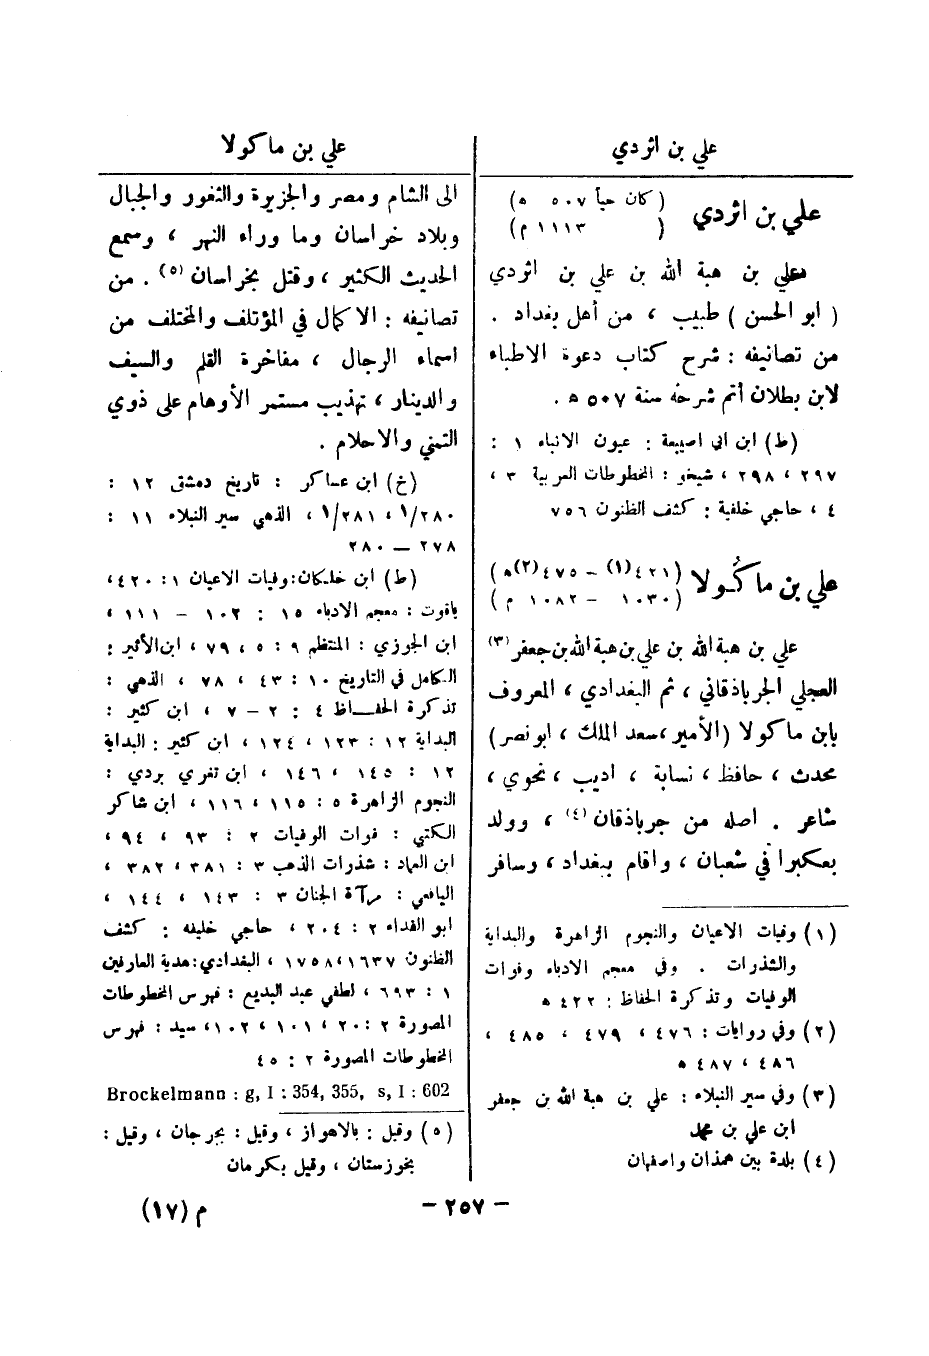 علي بن اثردي
علي بن اثردي ( كان حياً ٥٠٧ ه )
( ١١١٣ م )
علي بن هبة الله بن علي بن اثردي
( ابو الحسن ) طبيب ، من أهل بغداد .
من تصانيفه : شرح كتاب دعوة الاطباء
لابن بطلان أتم شرحه سنة ٥٠٧ ه .
(ط) ابن ابي اصيبعة : عيون الانباء ١ :
٢٩٧ ، ٢٩٨ ، شيخو : المخطوطات العربية ٣ ،
٤ ، حاجي خلفية : كشف الظنون ٧٥٦
علي بن ماكُولا (٤٢١(١) – ٤٧٥(٢)ه )
( ١٠٣٠ – ١٠٨٢ م )
علي بن هبة الله بن علي بن هبة الله بن جعفر (٣)
العجلي الجرباذقاني ، ثم البغدادي ، المعروف
بابن ماكولا (الأمير، سعد الملك ، ابو نصر)
محدث ، حافظ ، نسابة ، اديب ، نحوي ،
شاعر . اصله من جرباذقان (٤) ، وولد
بعكبرا في شعبان ، واقام ببغداد ، وسافر
(١) وفيات الاعيان والنجوم الزاهرة والبداية
والشذرات . وفي معجم الادباء وفوات
الوفيات وتذكرة الحفاظ : ٤٢٢ ه
(٢) وفي روايات : ٤٧٦ ، ٤٧٩ ، ٤٨٥ ،
٤٨٦ ، ٤٨٧ ه
(٣) وفي سير النبلاء : علي بن هبة الله بن جعفر
ابن علي بن محمد
(٤) بلدة بين همذان واصفهان
علي بن ماكولا
الى الشام ومصر والجزيرة والثغور والجبال
وبلاد خراسان وما وراء النهر ، وسمع
الحديث الكثير ، وقتل بخراسان (٥) . من
تصانيفه : الاكمال في المؤتلف والمختلف من
اسماء الرجال ، مفاخرة القلم والسيف
والدينار ، تهذيب مستمر الأوهام على ذوي
التمني والاحلام .
(خ) ابن عساكر : تاريخ دمشق ١٢ :
١/٢٨٠ ، ١/٢٨١ ، الذهبي سير النبلاء ١١ :
٢٧٨ – ٢٨٠
(ط) ابن خلكان: وفيات الاعيان ١ : ٤٢٠،
ياقوت : معجم الادباء ١٥ : ١٠٢ – ١١١ ،
ابن الجوزي : المنتظم ٩ : ٥ ، ٧٩ ، ابن الأثير :
الكامل في التاريخ ١٠ : ٤٣ ، ٧٨ ، الذهبي :
تذكرة الحفاظ ٤ : ٢ – ٧ ، ابن كثير :
البداية ١٢ : ١٢٣ ، ١٢٤ ، ابن كثير : البداية
١٢ : ١٤٥ ، ١٤٦ ، ابن تغري بردي :
النجوم الزاهرة ٥ : ١١٥ ، ١١٦ ، ابن شاكر
الكتبي : فوات الوفيات ٢ : ٩٣ ، ٩٤ ،
ابن العماد : شذرات الذهب ٣ : ٣٨١ ، ٣٨٢ ،
اليافعي : مرآة الجنان ٣ : ١٤٣ ، ١٤٤ ،
ابو الفداء ٢ : ٢٠٤ ، حاجي خليفه : كشف
الظنون ١٦٣٧ ، ١٧٥٨ ، البغدادي : هدية العارفين
١ : ٦٩٣ ، لطفي عبد البديع : فهرس المخطوطات
المصورة ٢ : ٢٠ ، ١٠١ ، ١٠٢ ، سيد : فهرس
المخطوطات المصورة ٢ : ٤٥
Brockelmann : g, I : 354, 355, s, I : 602
(٥) وقيل : بالاهواز ، وقيل : بجرجان ، وقيل :
بخوزستان ، وقيل بكرمان
– ٢٥٧ –
م (١٧)